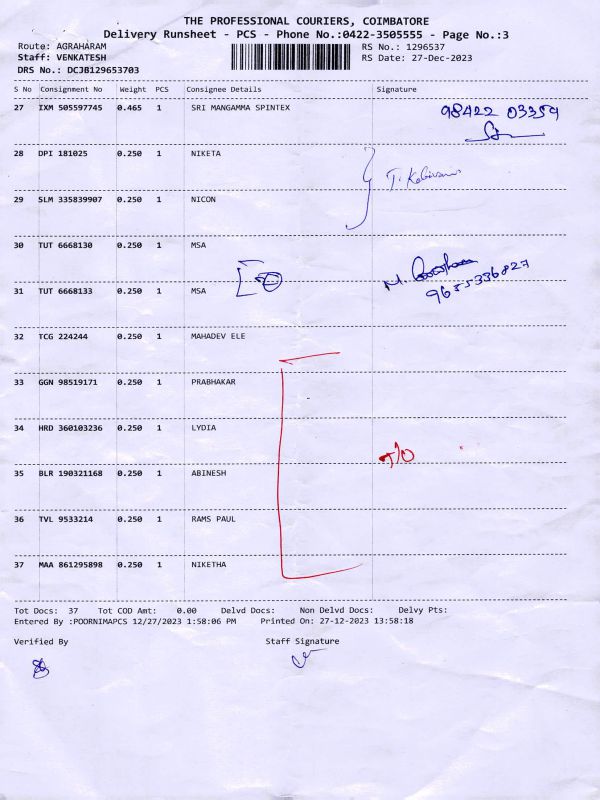 THE PROFESSIONAL COURIERS, COIMBATORE
Delivery Runsheet - PCS - Phone No.:0422-3505555 - Page No.:3
Route: AGRAHARAM RS No.: 1296537
Staff: VENKATESH RS Date: 27-Dec-2023
DRS No.: DCJB129653703
S No Consignment No Weight PCS Consignee Details Signature
27 IXM 505597745 0.465 1 SRI MANGAMMA SPINTEX 98422 03359
28 DPI 181025 0.250 1 NIKETA
29 SLM 335839907 0.250 1 NICON
30 TUT 6668130 0.250 1 MSA
31 TUT 6668133 0.250 1 MSA 9655336827
32 TCG 224244 0.250 1 MAHADEV ELE
33 GGN 98519171 0.250 1 PRABHAKAR
34 HRD 360103236 0.250 1 LYDIA
35 BLR 190321168 0.250 1 ABINESH
36 TVL 9533214 0.250 1 RAMS PAUL
37 MAA 861295898 0.250 1 NIKETHA
Tot Docs: 37 Tot COD Amt: 0.00 Delvd Docs: Non Delvd Docs: Delvy Pts:
Entered By :POORNIMAPCS 12/27/2023 1:58:06 PM Printed On: 27-12-2023 13:58:18
Verified By Staff Signature